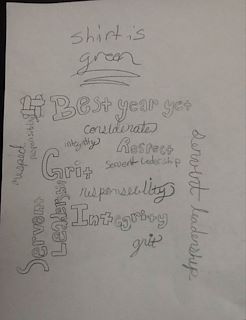 shirt is
green
# Best year yet
responsibility
considerate
integrity
Respect
respect
Servant Leadership
Grit
responsibility
Servant
Leadership
Integrity
grit
servant leadership